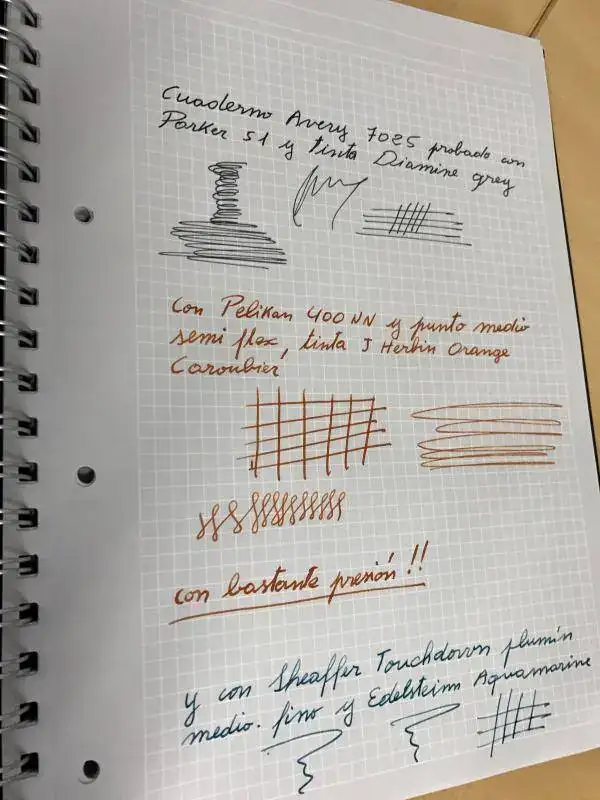 Cuaderno Avery 7025 probado con
Parker 51 y tinta Diamine grey
con Pelikan 400 NN y punto medio
semi flex, tinta J Herbin Orange
Caroubier
con bastante presión!!
y con Sheaffer Touchdown plumín
medio. fino y Edelsteinn Aquamarine